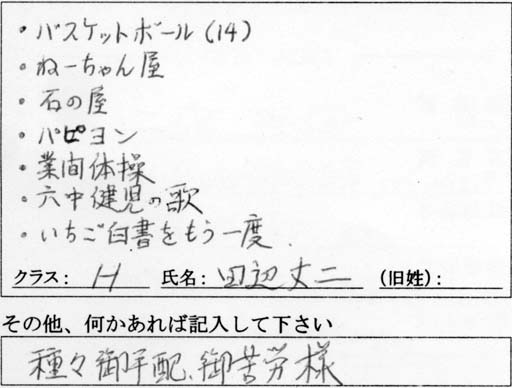 ・バスケットボール(14)
・ねーちゃん屋
・石の屋
・パピヨン
・業間体操
・六中健児の歌
・いちご白書をもう一度
クラス: H 氏名: 田辺丈二 (旧姓):
その他、何かあれば記入して下さい
種々御手配、御苦労様